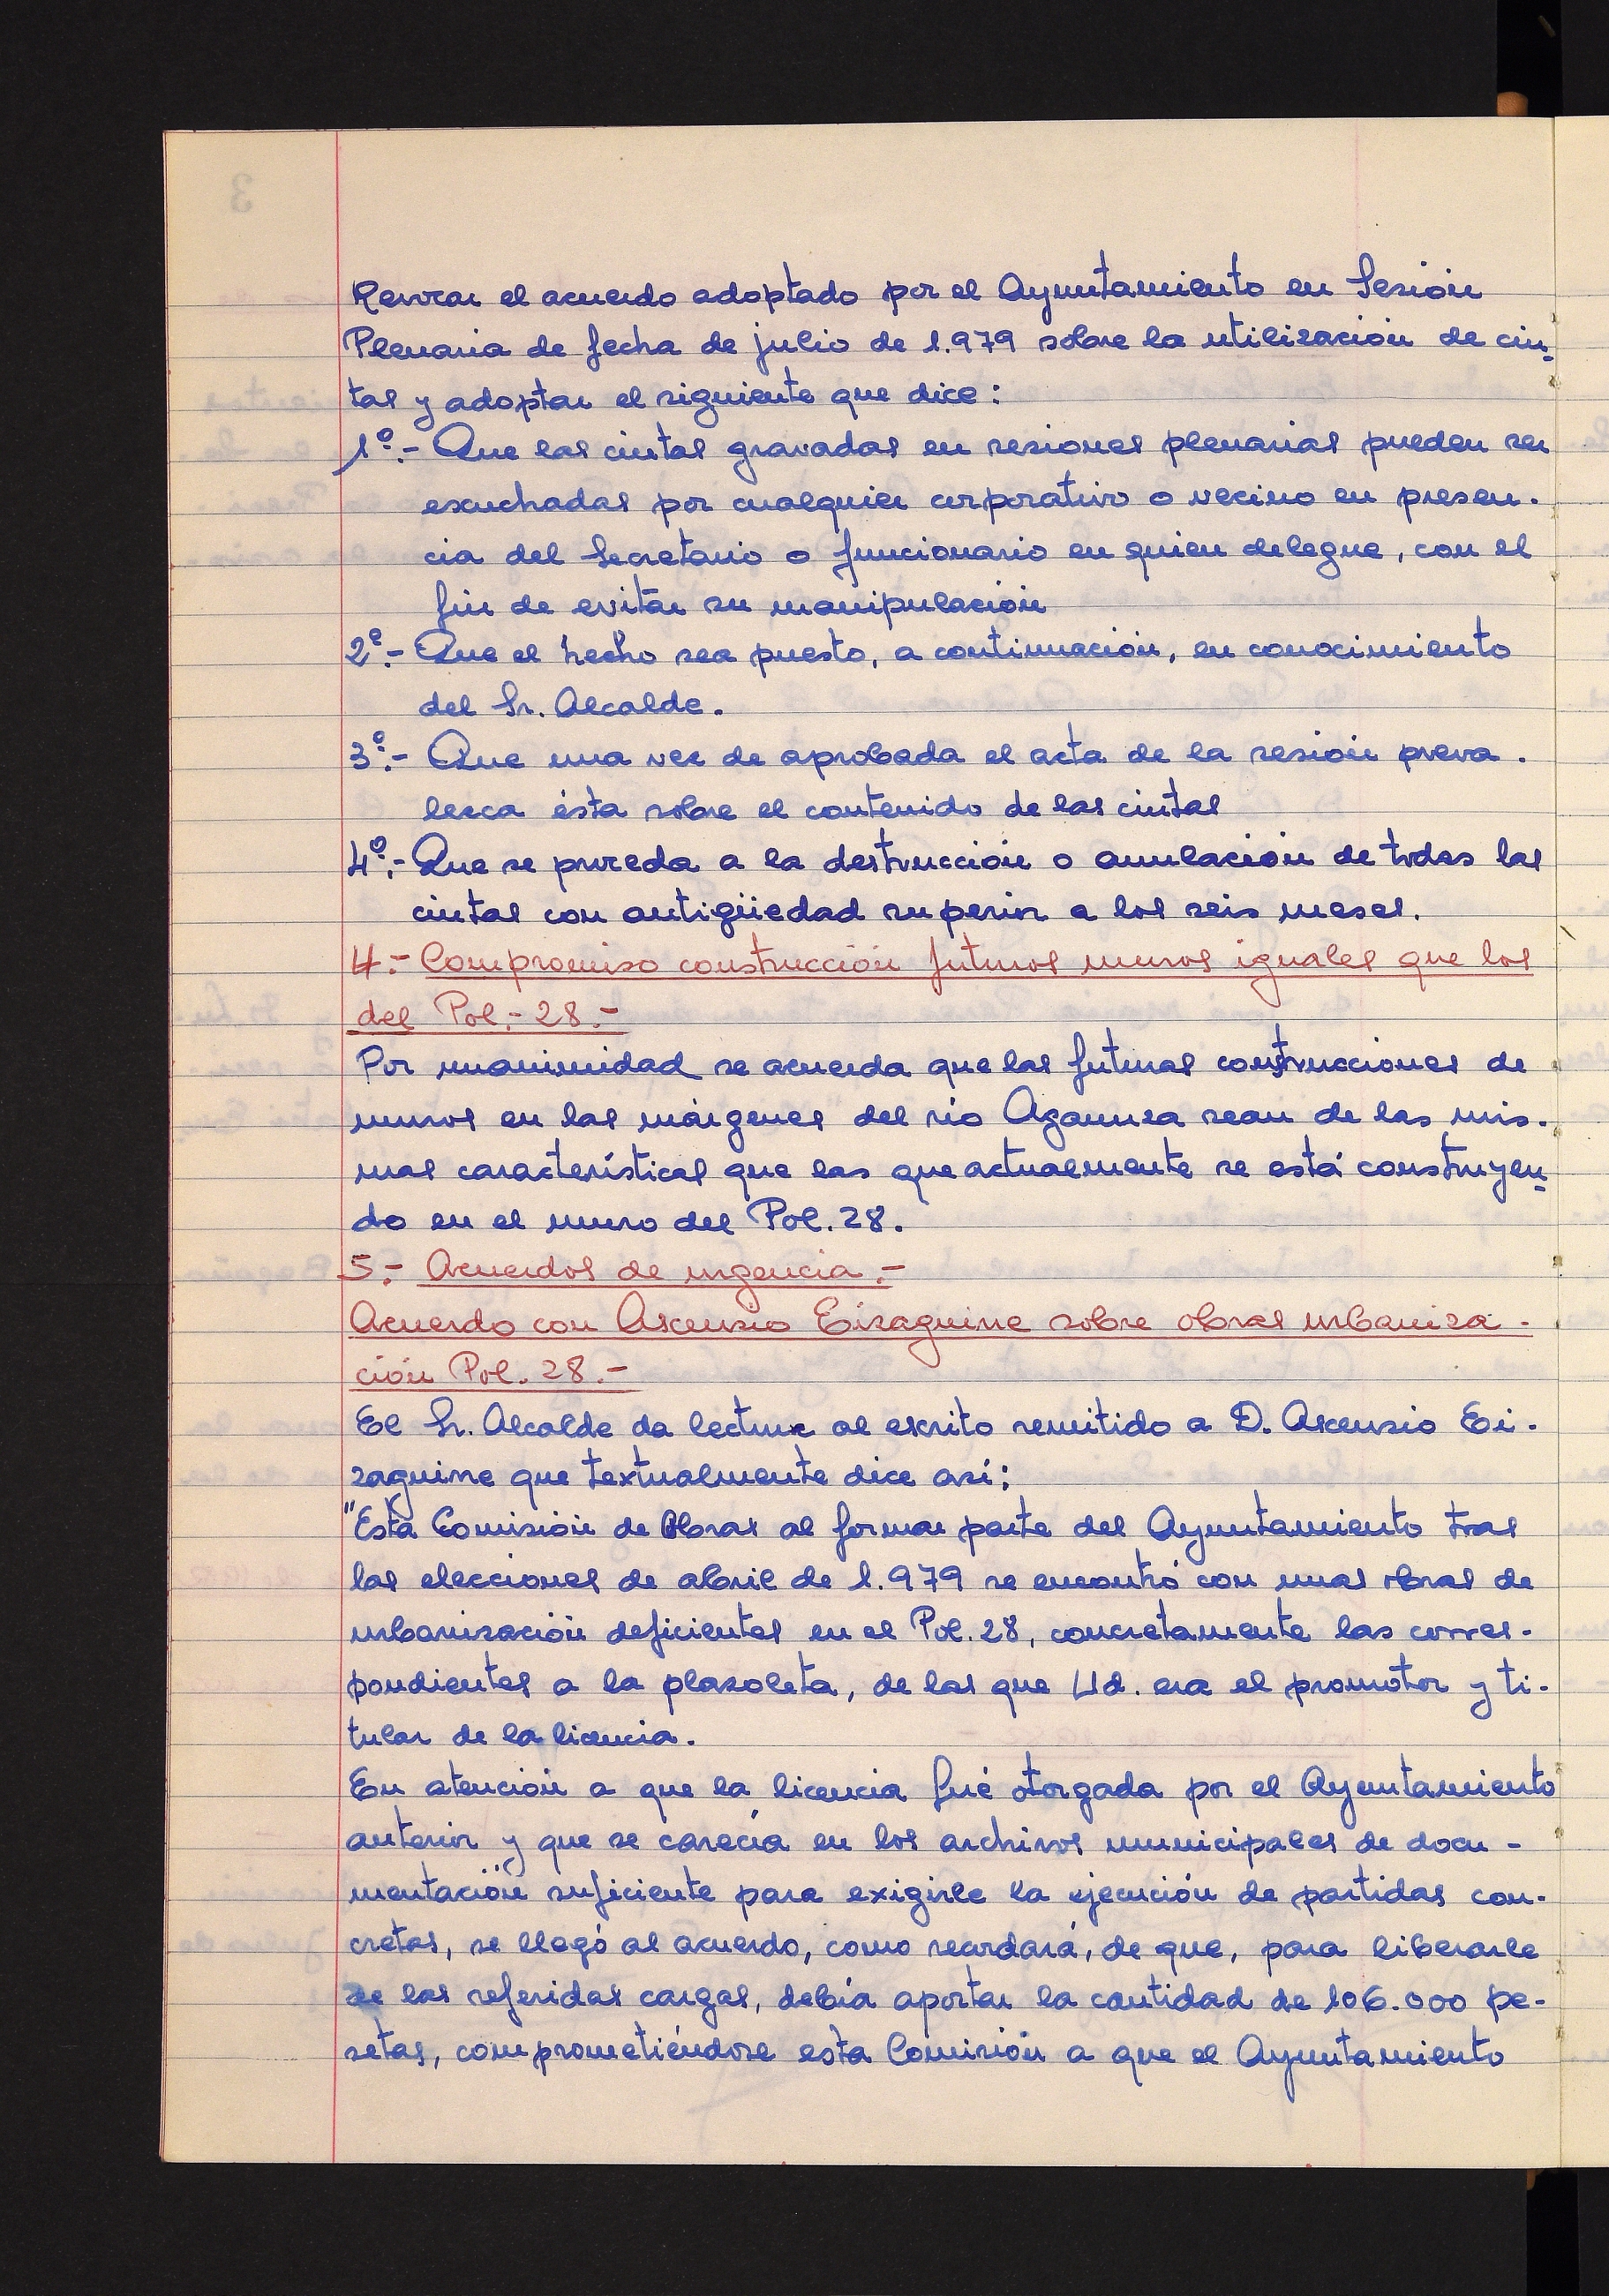 Revocar el acuerdo adoptado por el Ayuntamiento en Sesión
Plenaria de fecha de julio de 1.979 sobre la utilización de cin-
tas y adoptar el siguiente que dice:
1º.- Que las cintas gravadas en sesiones plenarias pueden ser
escuchadas por cualquier corporativo o vecino en presen-
cia del Secretario o funcionario en quien delegue, con el
fin de evitar su manipulación
2º.- Que el hecho sea puesto, a continuación, en conocimiento
del Sr. Alcalde.
3º.- Que una vez de aprobada el acta de la sesión preva-
lezca ésta sobre el contenido de las cintas
4º.- Que se proceda a la destrucción o anulación de todas las
cintas con antigüedad superior a los seis meses.
4.- Compromiso construcción futuros muros iguales que los
del Pol.- 28.-
Por unanimidad se acuerda que las futuras construcciones de
muros en las márgenes del río Agaunza sean de las mis-
mas características que las que actualmente se está construyen-
do en el muro del Pol. 28.
5.- Acuerdos de urgencia.-
Acuerdo con Ascensio Eizaguirre sobre obras urbaniza-
ción Pol. 28.-
El Sr. Alcalde da lectura al escrito remitido a D. Ascensio Ei-
zaguirre que textualmente dice así:
"Esta Comisión de Obras al formar parte del Ayuntamiento tras
las elecciones de abril de 1.979 se encontró con unas obras de
urbanización deficientes en el Pol. 28, concretamente las corres-
pondientes a la plazoleta, de las que Ud. era el promotor y ti-
tular de la licencia.
En atención a que la licencia fué otorgada por el Ayuntamiento
anterior y que se carecía en los archivos municipales de docu-
mentación suficiente para exigirle la ejecución de partidas con-
cretas, se llegó al acuerdo, como recordará, de que, para liberarle
de las referidas cargas, debía aportar la cantidad de 106.000 pe-
setas, comprometiéndose esta Comisión a que el Ayuntamiento